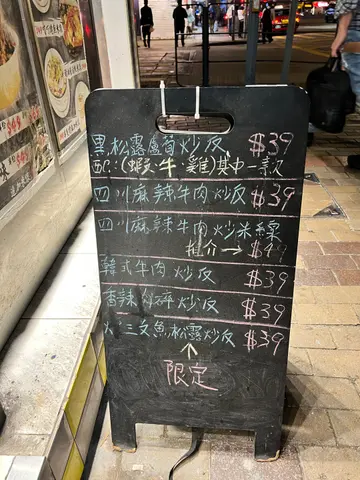 黑松露蘆荀炒反 $39
配:(蝦、牛、雞)其中一款
四川麻辣牛肉炒反 $39
四川麻辣牛肉炒米線
推介→ $49
韓式牛肉炒反 $39
香辣 炒反 $39
三文魚松露炒反 $39
↑
限定